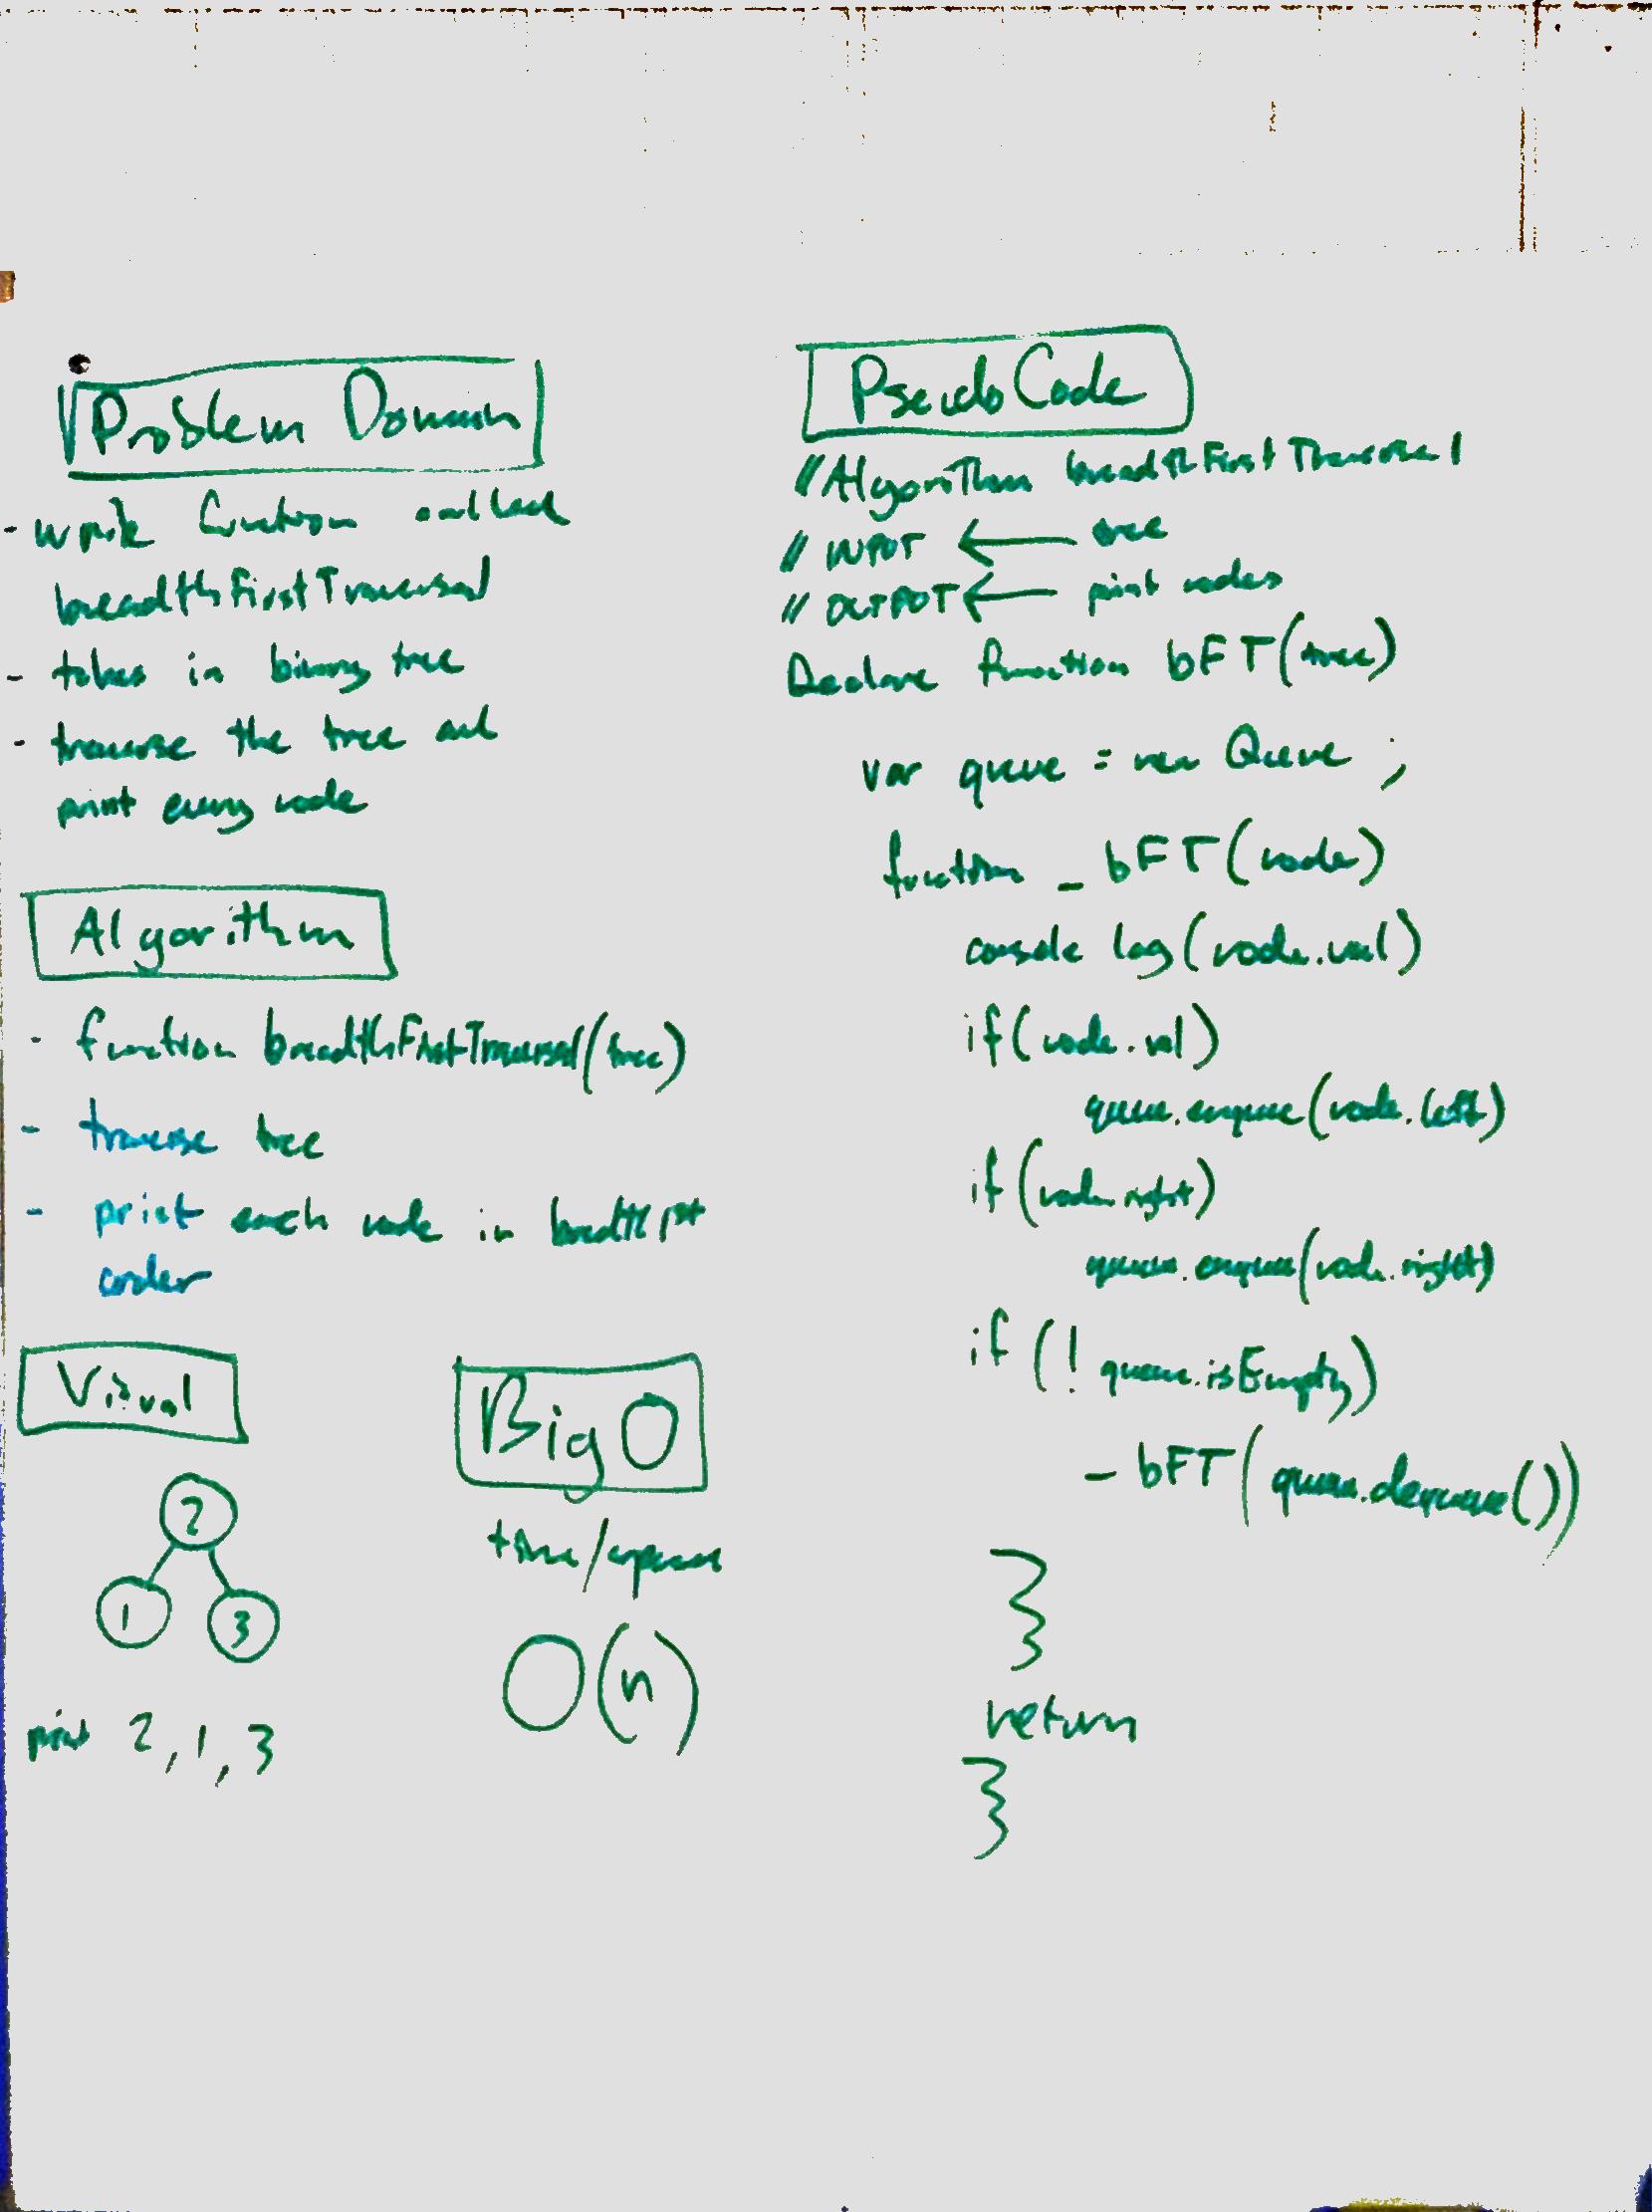 Problem Domain
- write function called
breadthFirstTraversal
- takes in binary tree
- traverse the tree and
print every node
Algorithm
- function breadthFirstTraversal(tree)
- traverse tree
- print each node in breadth 1st
order
Visual
2
1 3
print 2, 1, 3
Big O
time/space
O(n)
PseudoCode
// Algorithm breadthFirstTraversal
// INPUT ← tree
// OUTPUT ← print nodes
Declare function bFT(tree)
var queue = new Queue ;
function _bFT(node)
console log(node.val)
if(node.val)
queue.enqueue(node.left)
if(node.right)
queue.enqueue(node.right)
if (! queue.isEmpty)
_bFT(queue.dequeue())
}
return
}